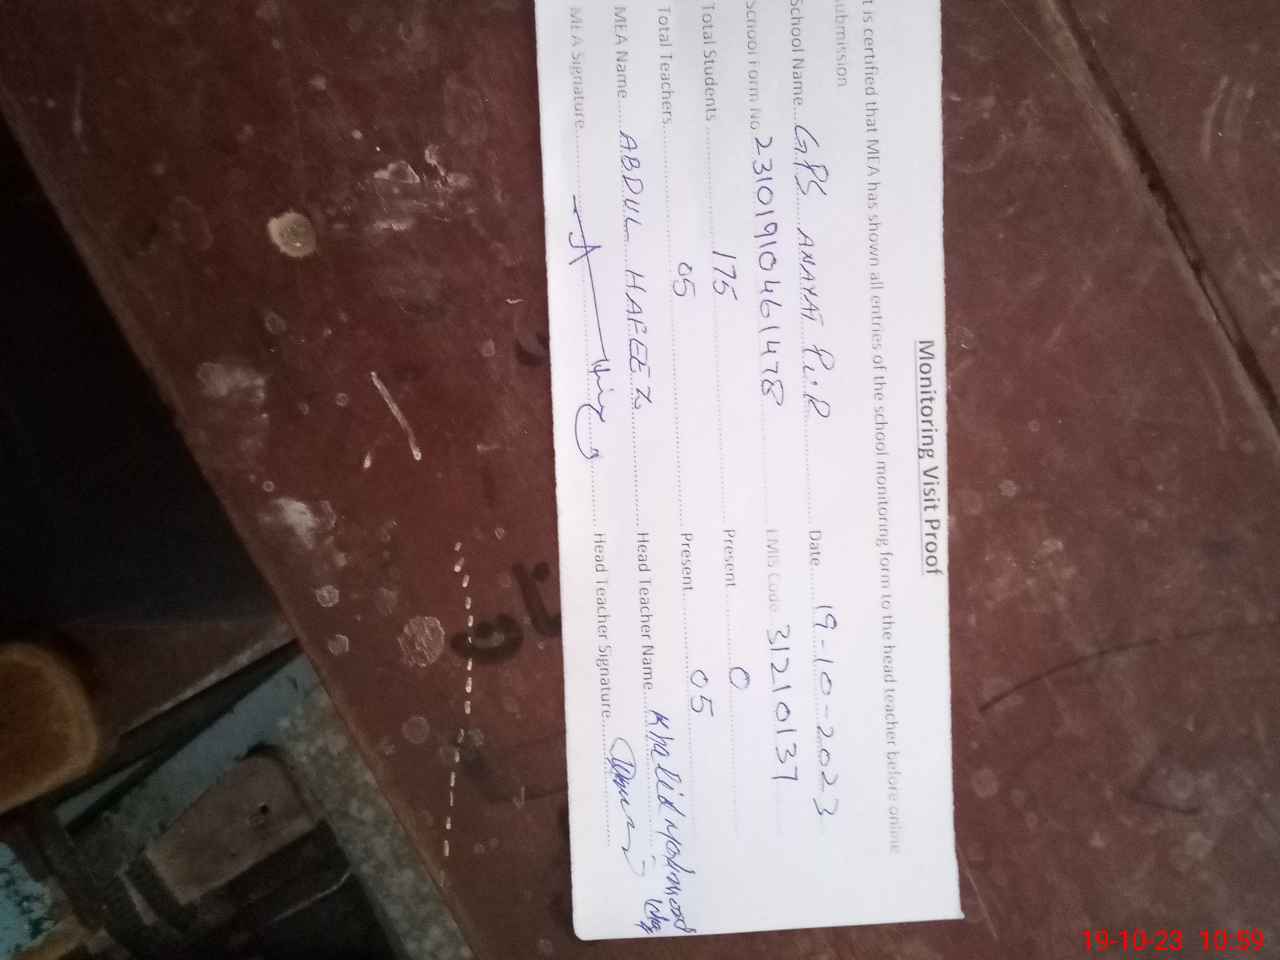 Monitoring Visit Proof
t is certified that MEA has shown all entries of the school monitoring form to the head teacher before online
ubmission
School Name....GPS ANAYAT PUR............Date.......19-10-2023
School Form No 23101910461478 EMIS Code 31210137
Total Students ..................175 Present............0
Total Teachers..................05 Present............05
MEA Name......ABDUL HAFEEZ............Head Teacher Name....Khalid Mahmood
MEA Signature............Head Teacher Signature............
19-10-23 10:59